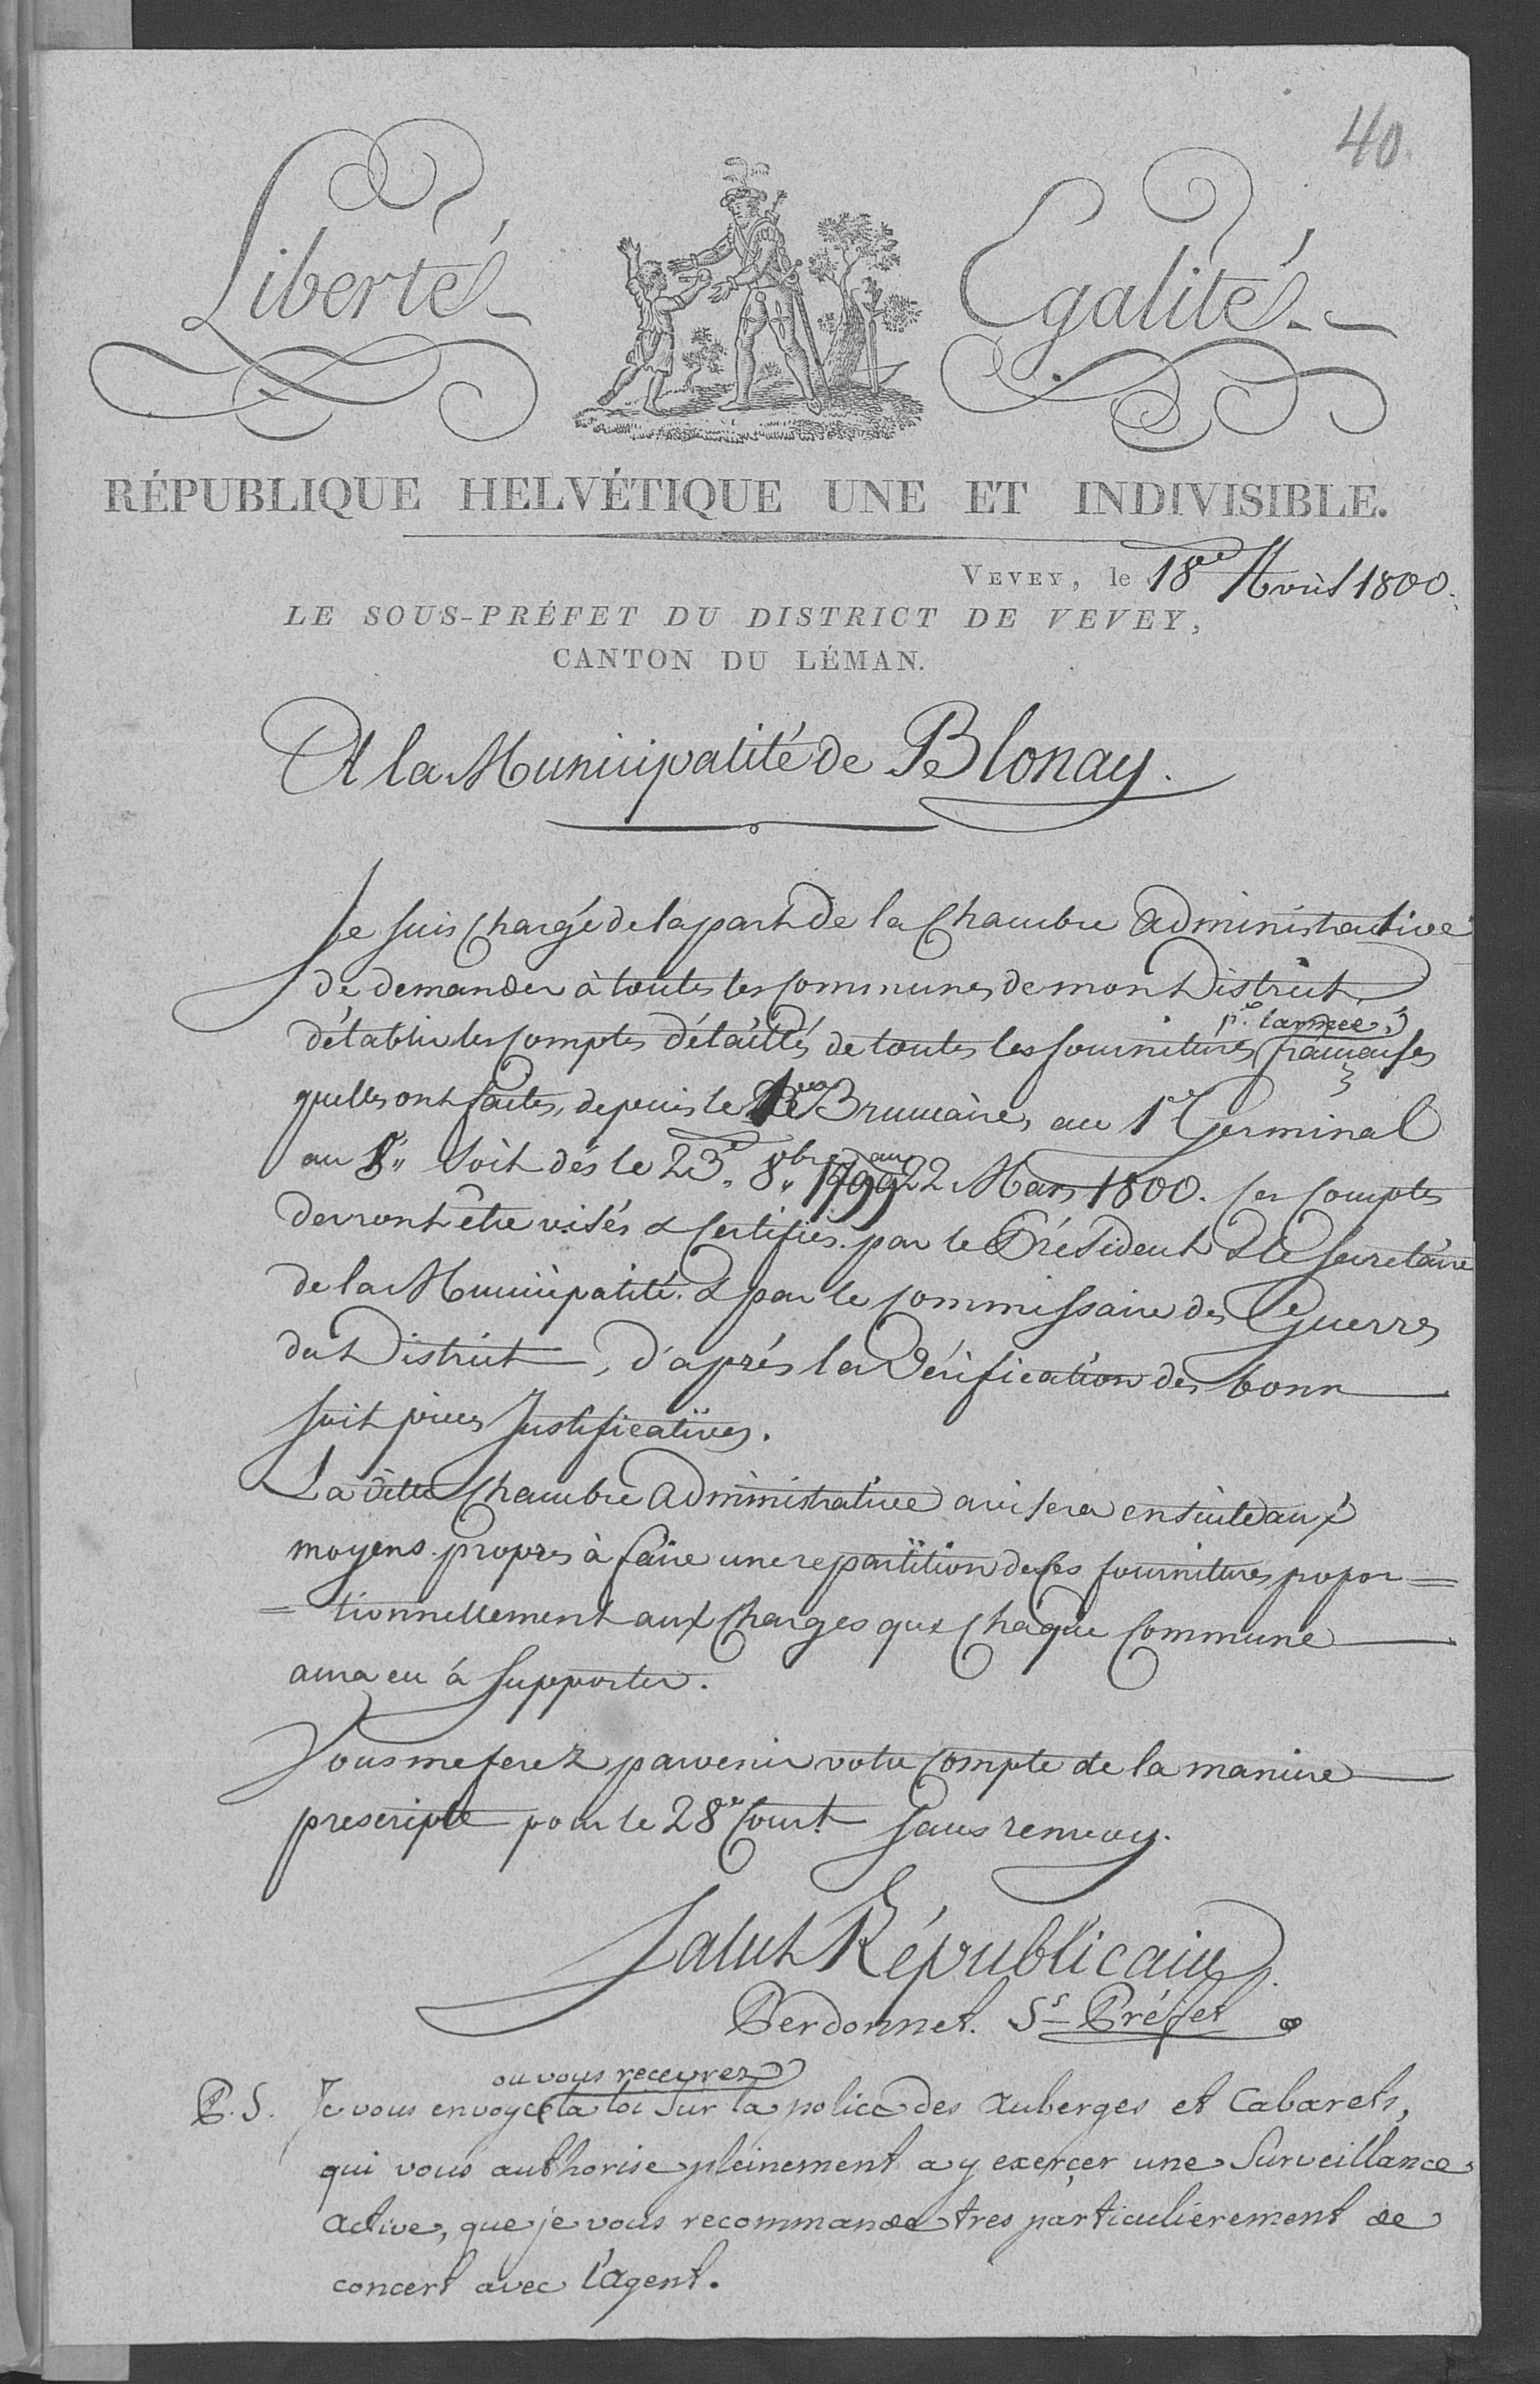 40.
Liberté
Egalité
RÉPUBLIQUE HELVÉTIQUE UNE ET INDIVISIBLE.
VEVEY, le 18e Avril 1800.
LE SOUS-PRÉFET DU DISTRICT DE VEVEY,
CANTON DU LÉMAN.
A la Municipalité de Blonay.
Je suis Chargé de la part de la Chambre administrative
de demander à toutes les Communes de mon District
d'établir les Comptes détaillés de toutes les fournitures pr. l'armée française
quelles ont faites, depuis le 1er Brumaire, au 1er Germinal
an 8" Soit dès le 23e. 8bre 1799 au 22 Mars 1800. Ces Comptes
devront être visés & Certifiés par le Président & le Secretaire
de la Municipalité & par le Commissaire des Guerres
du District, d'après la Vérification des bonn
soit pieces Justificatives.
La ditte Chambre administrative avisera ensuite aux
moyens propres à faire une repartition de ces fournitures propor=
=tionnellement aux Charges que Chaque Commune
aura eu à Supporter.
Vous me ferez parvenir votre Compte de la maniere
prescripte pour le 28e Court. Sans renvoy.
Salut Républicain.
Perdonnet. Ss Préfet
P.S. Je vous envoye ou vous recevrez la loi Sur la police des Auberges et Cabarets,
qui vous authorise pleinement a y exerçer une Surveillance
active, que je vous recommande tres particulierement de
concert avec l'Agent.